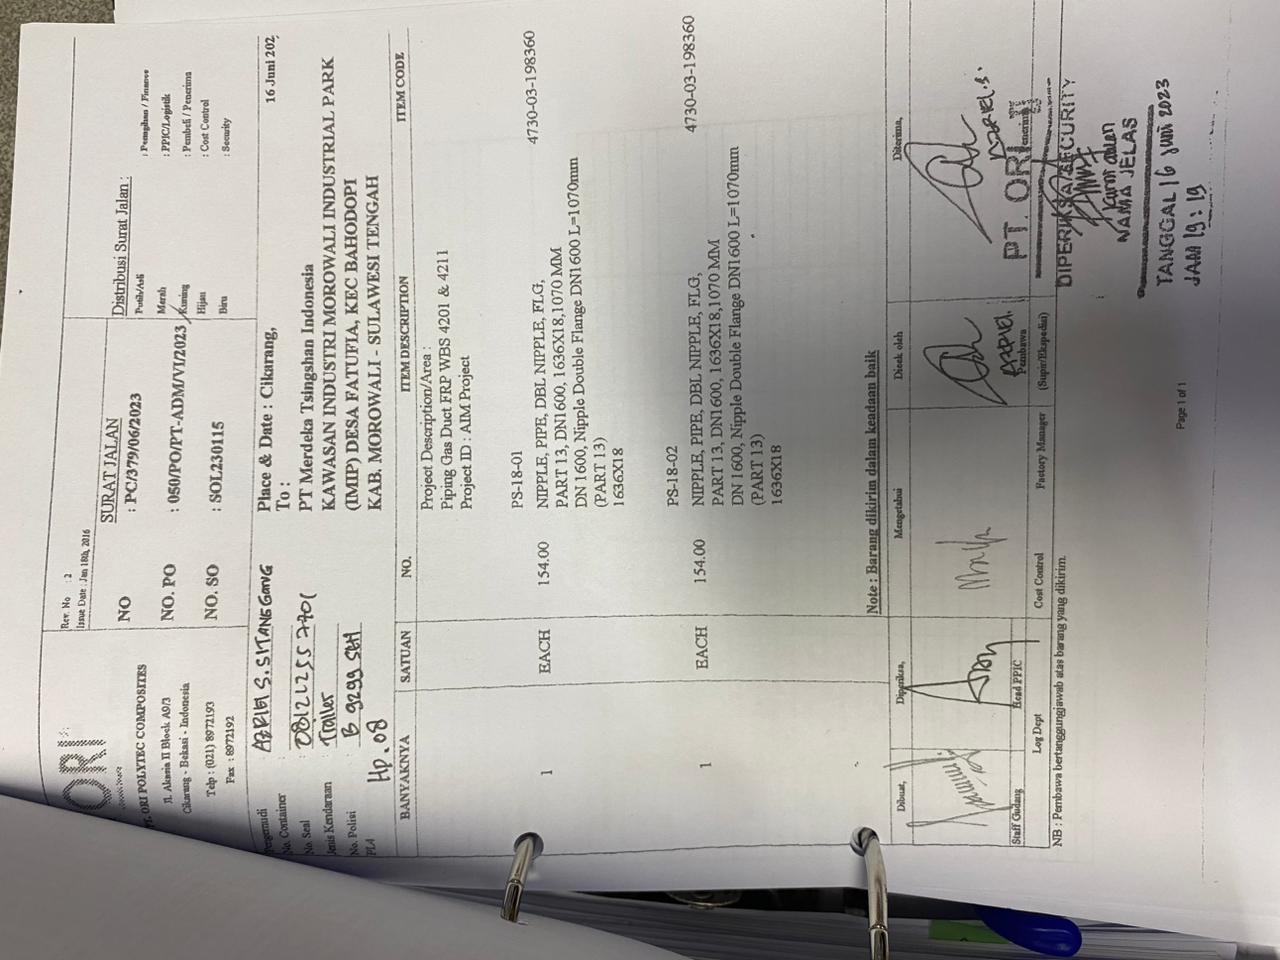 ORI
PT. ORI POLYTEC COMPOSITES
Jl. Akasia II Block A9/3
Cikarang - Bekasi - Indonesia
Telp : (021) 8972193
Fax : 8972192
Rev. No : 2
Issue Date : Jan 18th, 2016
SURAT JALAN
NO : PC/379/06/2023
NO. PO : 050/PO/PT-ADM/VI/2023
NO. SO : SOL230115
Distribusi Surat Jalan :
Putih/Asli : Penagihan / Finance
Merah : PPIC/Logistik
Kuning : Pembeli / Penerima
Hijau : Cost Control
Biru : Security
Pengemudi : AZRIEL S. SITANGGANG
No. Container :
No. Seal : 081212557701
Jenis Kendaraan : Trailer
No. Polisi : B 9299 SEH
PLA Hp. 08
Place & Date : Cikarang, 16 Juni 202
To :
PT Merdeka Tsingshan Indonesia
KAWASAN INDUSTRI MOROWALI INDUSTRIAL PARK
(IMIP) DESA FATUFIA, KEC BAHODOPI
KAB. MOROWALI - SULAWESI TENGAH
BANYAKNYA SATUAN NO. ITEM DESCRIPTION ITEM CODE
Project Description/Area :
Piping Gas Duct FRP WBS 4201 & 4211
Project ID : AIM Project
PS-18-01
1 EACH 154.00 NIPPLE, PIPE, DBL NIPPLE, FLG, 4730-03-198360
PART 13, DN1600, 1636X18,1070 MM
DN 1600, Nipple Double Flange DN1600 L=1070mm
(PART 13)
1636X18
PS-18-02
1 EACH 154.00 NIPPLE, PIPE, DBL NIPPLE, FLG, 4730-03-198360
PART 13, DN1600, 1636X18,1070 MM
DN 1600, Nipple Double Flange DN1600 L=1070mm
(PART 13)
1636X18
Note : Barang dikirim dalam keadaan baik
Dibuat, Diperiksa, Mengetahui Dicek oleh Diterima,
AZRIEL.
AZRIEL.S.
Pembawa
Staff Gudang Head PPIC
Log Dept Cost Control Factory Manager (Supir/Ekspedisi)
NB : Pembawa bertanggungjawab atas barang yang dikirim.
PT. ORI
DIPERIKSA SECURITY
NAMA JELAS
TANGGAL 16 Juni 2023
JAM 19:19
Page 1 of 1